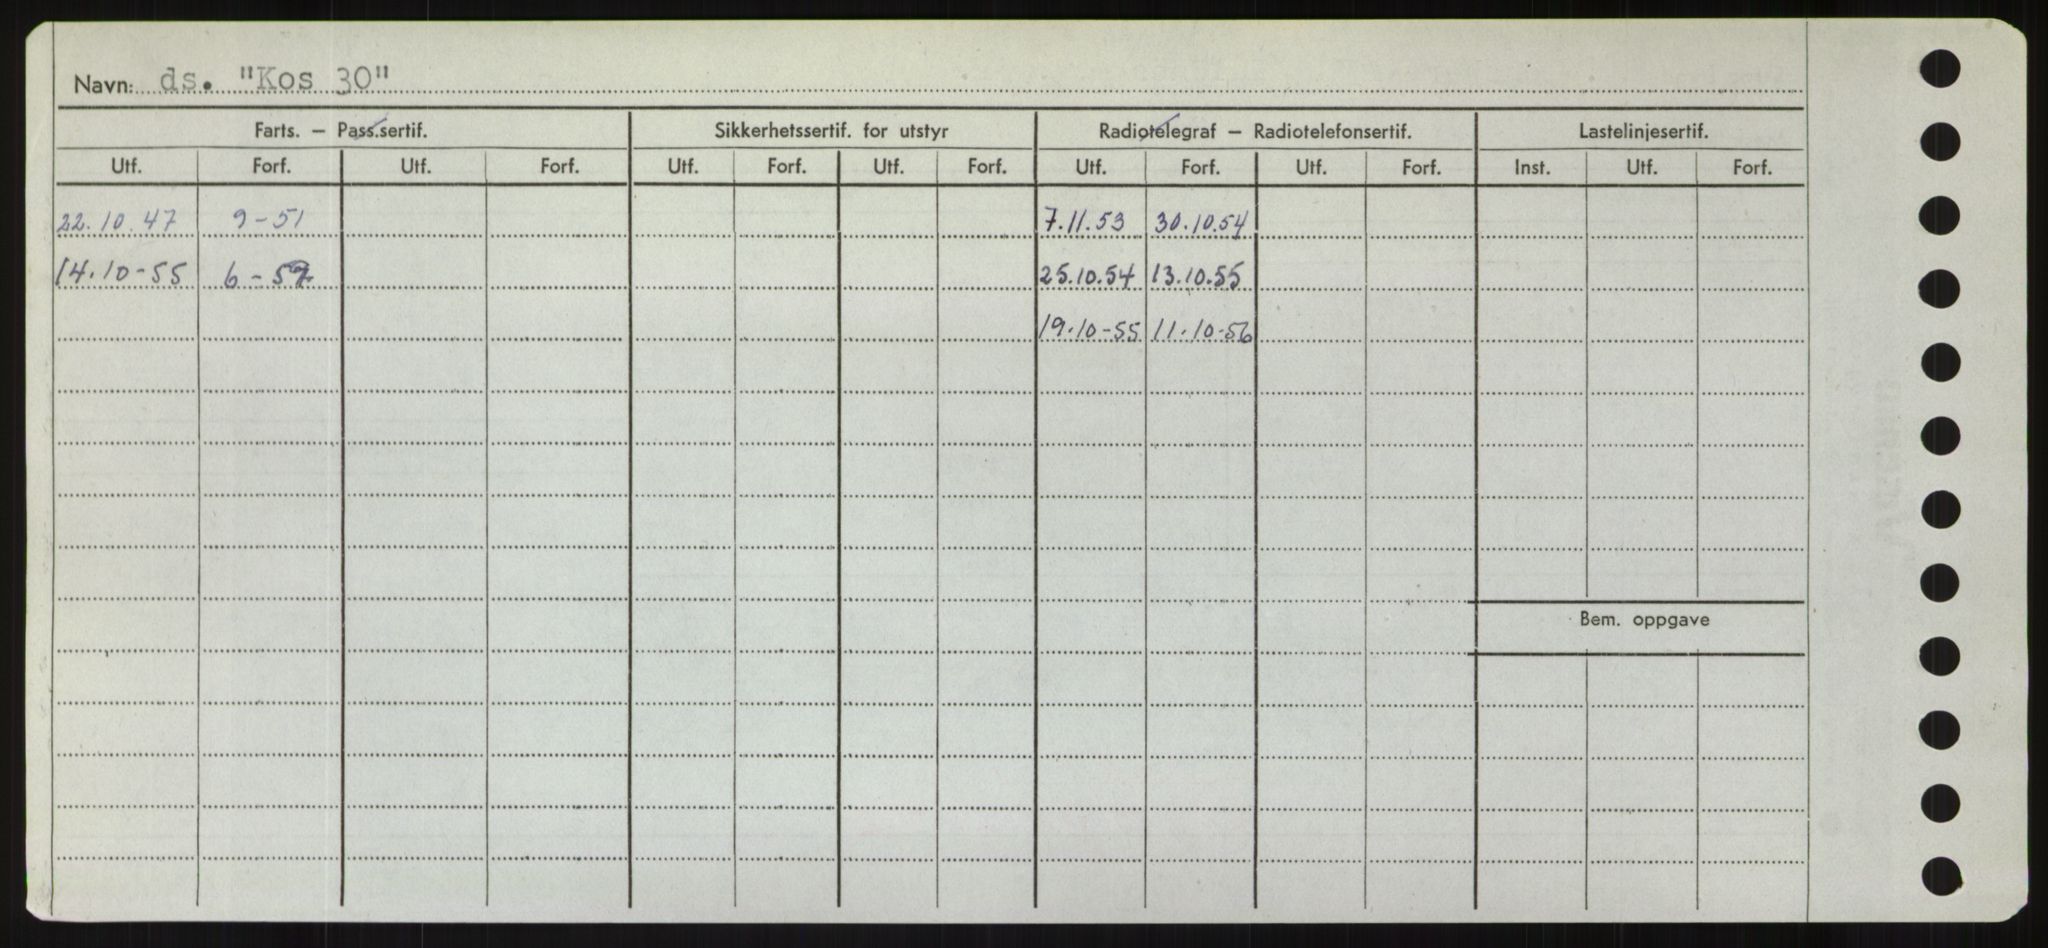 Navn: ds. "Kos 30"
Farts. – Pass.sertif. Sikkerhetssertif. for utstyr Radiotelegraf – Radiotelefonsertif. Lastelinjesertif.
Utf. Forf. Utf. Forf. Utf. Forf. Utf. Forf. Utf. Forf. Utf. Forf. Inst. Utf. Forf.
22.10.47 9-51 7.11.53 30.10.54
14.10-55 6-59 25.10.54 13.10.55
19.10-55 11.10-56
Bem. oppgave